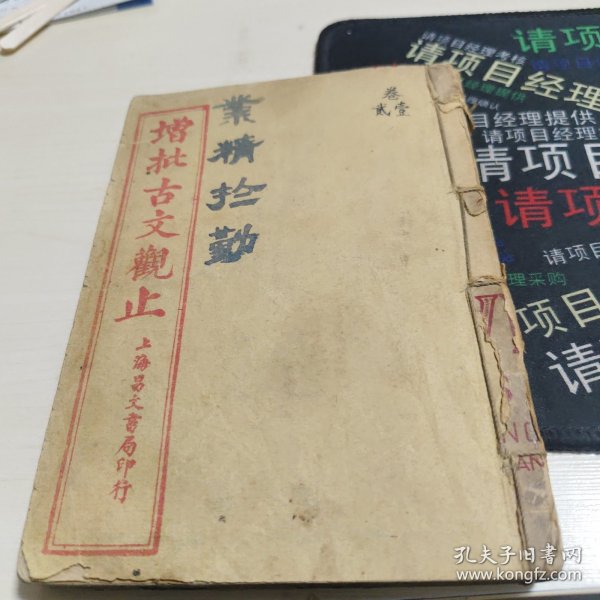 增批古文觀止
上海昌文書局印行
業精於勤
卷壹
貳
请项目经理考核
请项目经理
经理提供
目经理提供
请项目
请项目
请项目
理采购
项目
请
孔夫子旧书网
www.kongfz.com